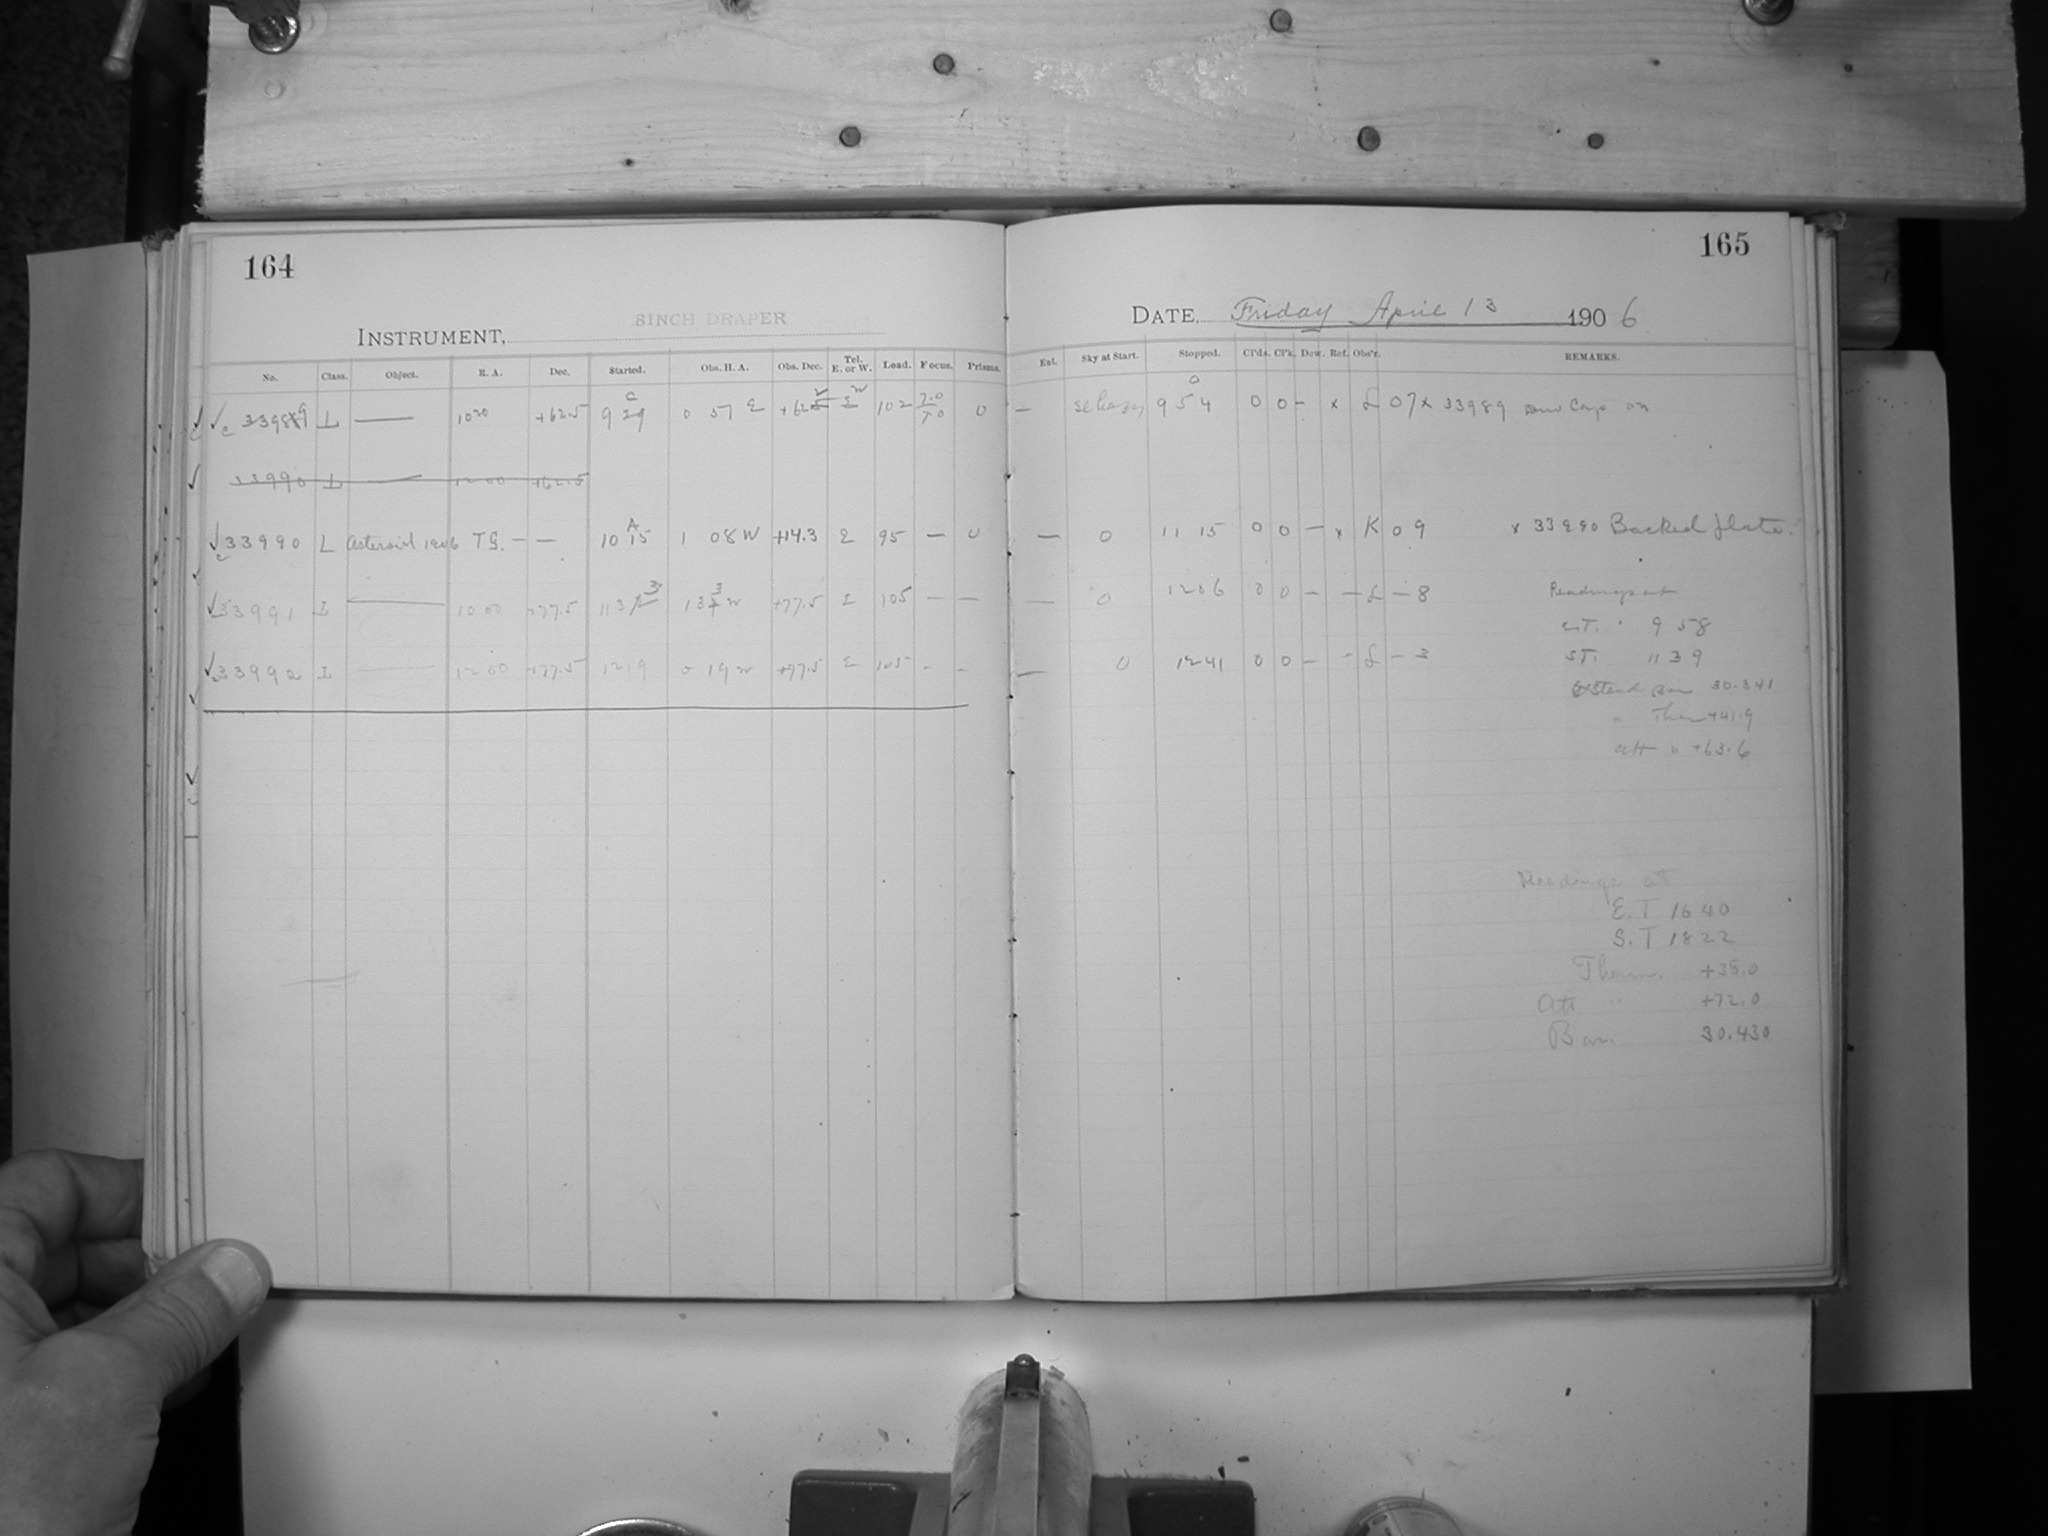 164
8INCH DRAPER
INSTRUMENT,
No. Class. Object. R. A. Dec. Started. Obs. H. A. Obs. Dec. Tel. E. or W. Load. Focus. Prisms.
33989 L — 10 20 +62.5 9 29 0 57 E +62.5 E W 102 7.0 7.0 0
33990 L — 12 00 +62.5
33990 L Asteroid 1906 T G. — — 10 15 1 08 W +14.3 E 95 — 0
33991 L — 10 00 +77.5 11 3 3 1 3 3 W +77.5 E 105 — —
33992 L — 12 00 +77.5 12 19 0 19 W +77.5 E 105 - -
165
DATE, Friday April 13 1906
Exl. Sky at Start. Stopped. Cl'ds. Cl'k. Dew. Ref. Obs'r. REMARKS.
— 9 54 0 0 — x L 07 x 33989 Dew Cap on
— 0 11 15 0 0 — x K 0 9 x 33990 Backed plate.
— 0 12 06 0 0 — — L — 8 Readings at
E.T. 9 58
— 0 12 41 0 0 — - L - 3 S.T. 11 39
Stand Bar 30.341
" Ther +41.9
att " +63.6
Readings at
E.T 16 40
S.T 18 22
Therm. +38.0
Att " +72.0
Bar. 30.430